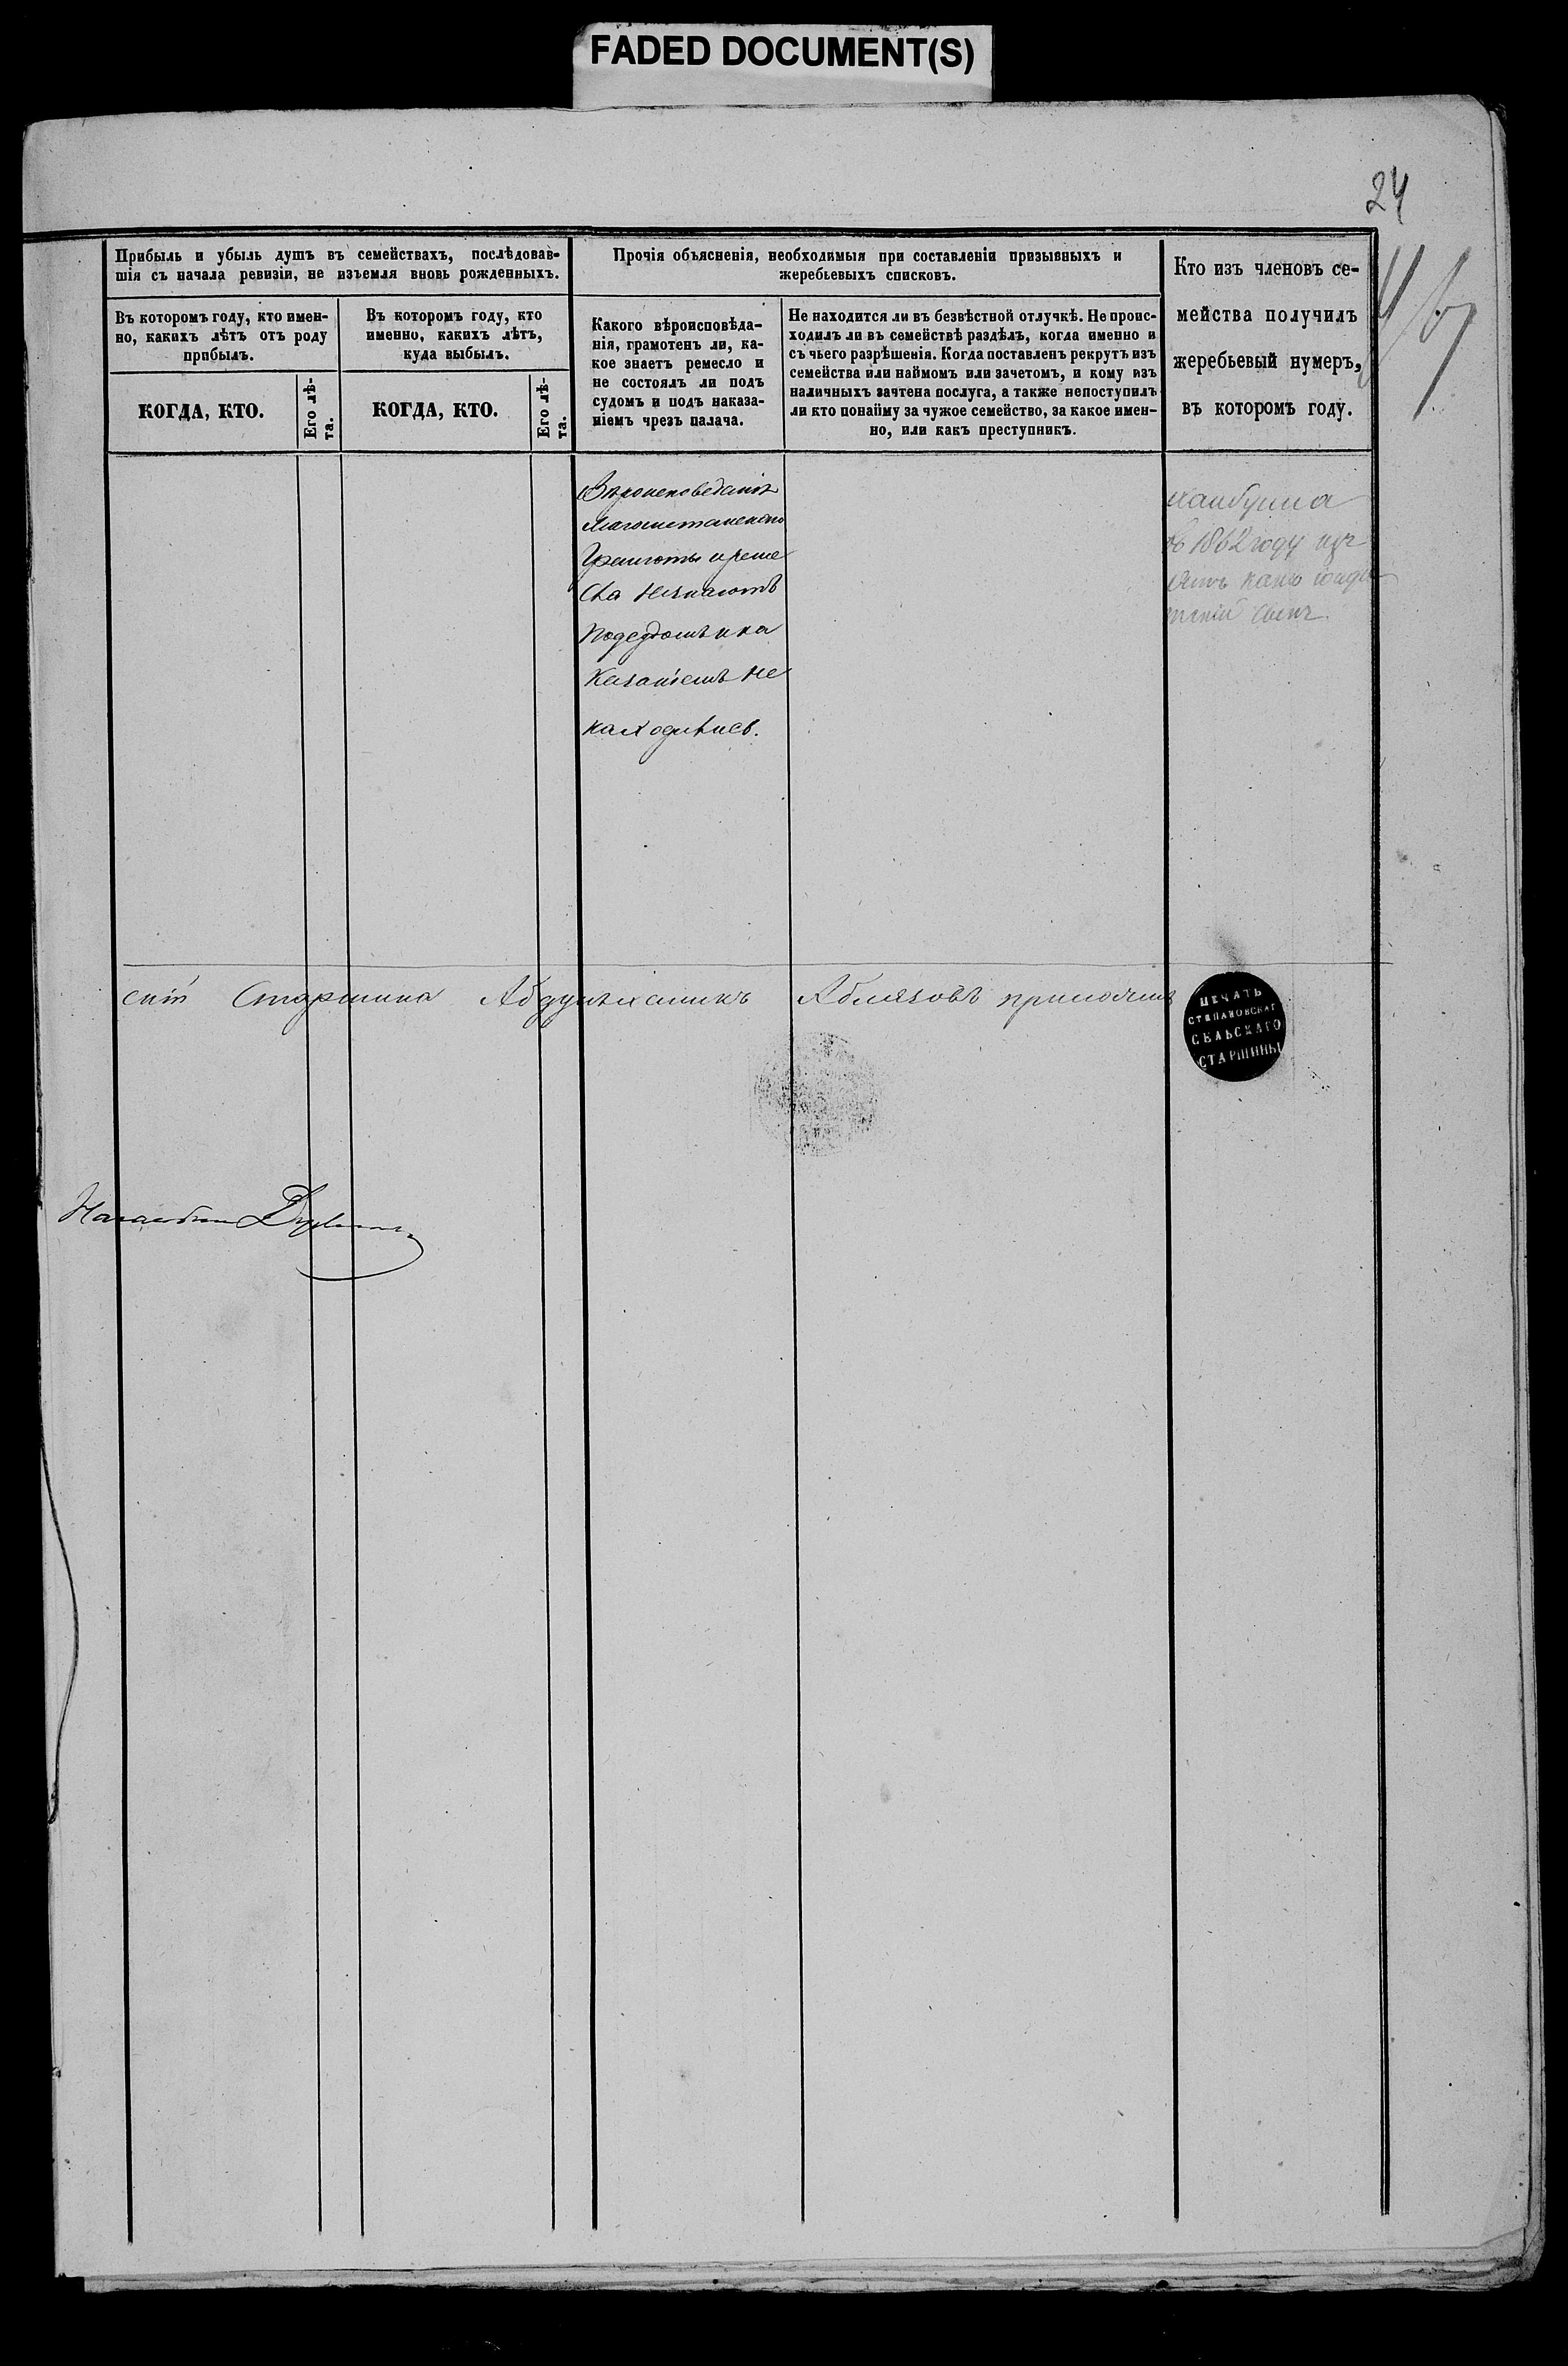 FADED DOCUMENT(S)
24
Прибыль и убыль душъ въ семействахъ, послѣдовав-
шія съ начала ревизіи, не изъемля вновь рожденныхъ.
Въ которомъ году, кто имен-
но, какихъ лѣтъ отъ роду
прибылъ.
КОГДА, КТО.
Его лѣ-
та.
Въ которомъ году, кто
именно, какихъ лѣтъ,
куда выбылъ.
КОГДА, КТО.
Его лѣ-
та.
Прочія объясненія, необходимыя при составленіи призывныхъ и
жеребьевыхъ списковъ.
Какого вѣроисповѣда-
нія, грамотенъ ли, ка-
кое знаетъ ремесло и
не состоялъ ли подъ
судомъ и подъ наказа-
ніемъ чрезъ палача.
Не находится ли въ безвѣстной отлучкѣ. Не проис-
ходилъ ли въ семействѣ раздѣлъ, когда именно и
съ чьего разрѣшенія. Когда поставленъ рекрутъ изъ
семейства или наймомъ или зачетомъ, и кому изъ
наличныхъ зачтена послуга, а также непоступилъ
ли кто понайму за чужое семейство, за какое имен-
но, или какъ преступникъ.
Кто изъ членовъ се-
мейства получилъ
жеребьевый нумеръ,
въ которомъ году.
Вѣроисповеданія
Магометанскаго
Грамоты и реме
сла незнаютъ
подсудомъ и на
казаніемъ не
находились.
въ 1862 году
скій Старшина Абдулхаликъ Аблязовъ приложилъ
ПЕЧАТЬ
СТЕПАНОВСКАГ
СЕЛЬСКАГО
СТАРШИНЫ